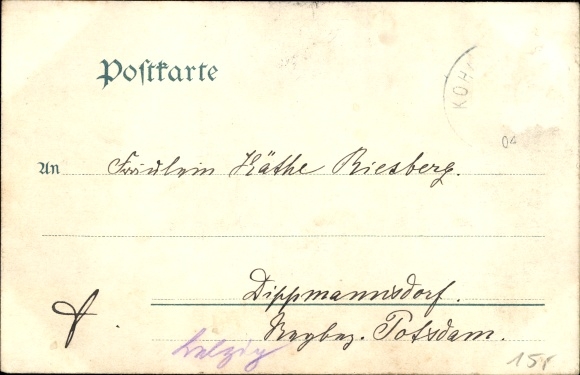 Postkarte
KOH
04
An Fräulein Käthe Riesberg.
Dippmannsdorf.
Regbez. Potsdam.
Belzig
15,